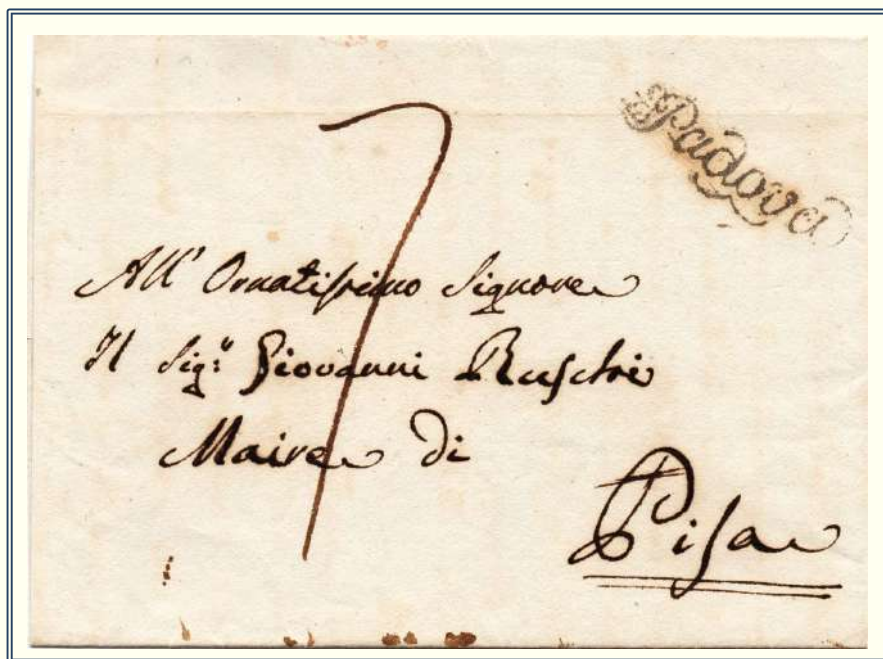 Padova
7
All' Ornatissimo Signore
Il Sig.r Giovanni Ruschi
Maire di
Pisa